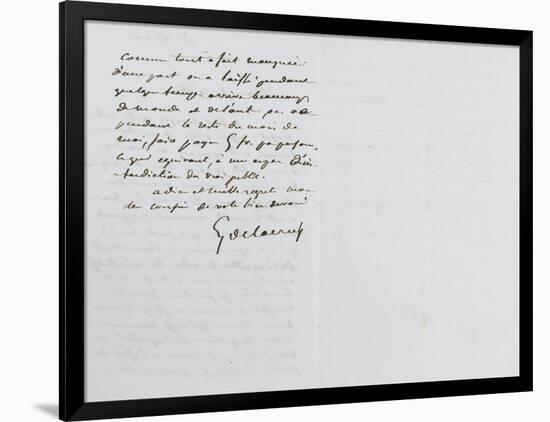 comme tout à fait manquée.
D'une part on a laissé pendant
quelque temps arriver beaucoup
de monde et de l'autre
pendant le reste du mois de
mai, faire payer 5 fr. par personne,
ce qui équivaut, à une
du vrai public.
adieu et mille regret mon
cher cousin de votre bien dévoué
EDelacroix